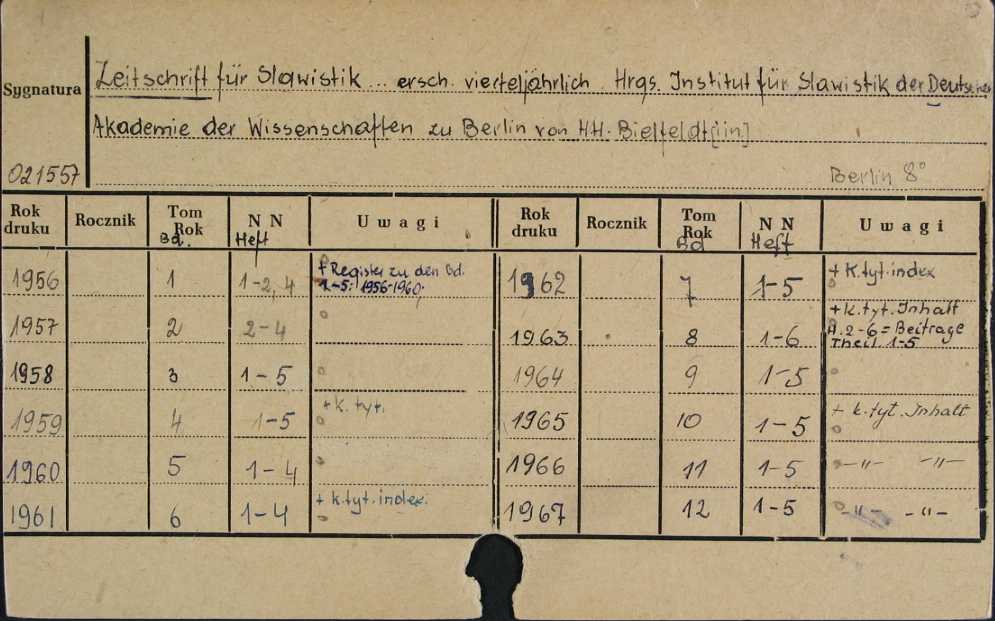 Zeitschrift für Slawistik ... ersch. vierteljährlich. Hrgs. Institut für Slawistik der Deutschen
Sygnatura
Akademie der Wissenschaften zu Berlin von HH. Bielfeldt[iin]
021557
Berlin 8°
Rok druku Rocznik Tom Rok Bd. NN Heft Uwagi Rok druku Rocznik Tom Rok Bd NN Heft Uwagi
1956 1 1-2, 4 + Register zu den Bd. 1-5: 1956-1960.
1957 2 2-4
1958 3 1-5
1959 4 1-5 + k. tyt.
1960 5 1-4
1961 6 1-4 + k.tyt.index.
1962 7 1-5 + K.tyt.index
1963 8 1-6 + k.tyt. Inhalt
H. 2-6 = Beitrage
Theil 1-5
1964 9 1-5
1965 10 1-5 + k.tyt. Inhalt
1966 11 1-5 -"- -"-
1967 12 1-5 -"- -"-